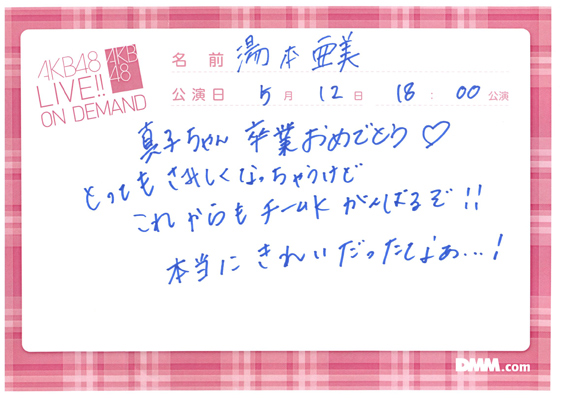 AKB48
LIVE!!
ON DEMAND
AKB
48
名前 湯本亜美
公演日 5月 12日 18:00公演
真子ちゃん 卒業おめでとう♡
とってもさみしくなっちゃうけど
これからもチームKがんばるぞ!!
本当にきれいだったなぁ...!
DMM.com